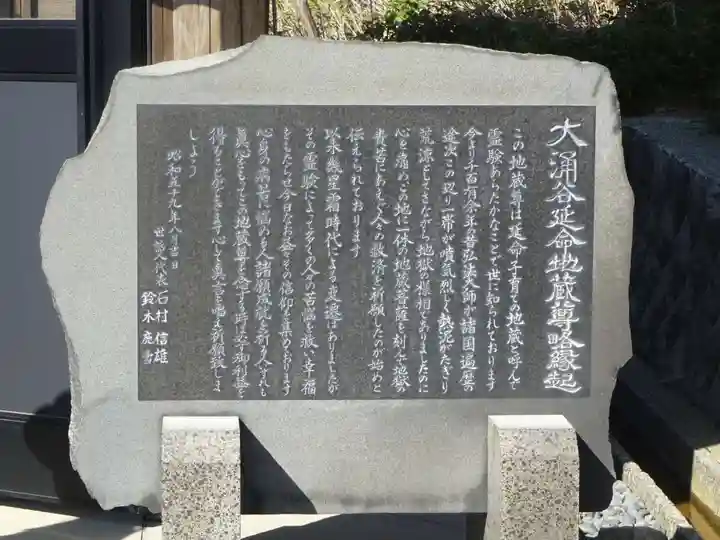 大涌谷延命地蔵尊略縁起
この地蔵尊は延命子育ての地蔵と呼んで
霊験あらたかなことで世に知られております
今より千百有余年の昔弘法大師が諸国遍歴の
途次この辺り一帯が噴気烈しく熱泥がたぎり
荒涼としてさながら地獄の様相でありましたのに
心を痛めこの地に一体の地蔵菩薩を刻んで地獄の
責苦にあえぐ人々の救済を祈願したのが始めと
伝えられております
以来幾星霜時代による変遷はありましたが
その霊験によって多くの人々の苦悩を救い幸福
をもたらせ今日なお益々その信仰を集めております
心身の病苦悩のある人諸願成就を祈る人々も
真心をもってこの地蔵尊を念ずる時は必ず御利益を
得ることができます心して真言を唱え祈願致しま
しょう
昭和五十九年八月吉日
世話人代表 石村信雄
鈴木康雪